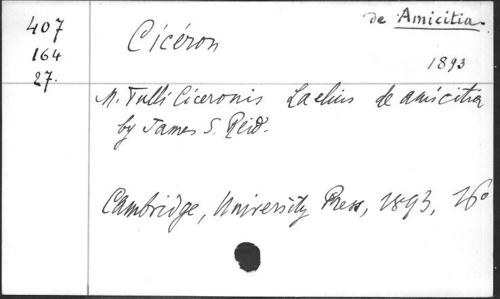 407
164
27.
Cicéron
de Amicitia.
1893
M. Tulli Ciceronis Laelius de amicitia
by James S. Reid.
Cambridge, University Press, 1893, 16°